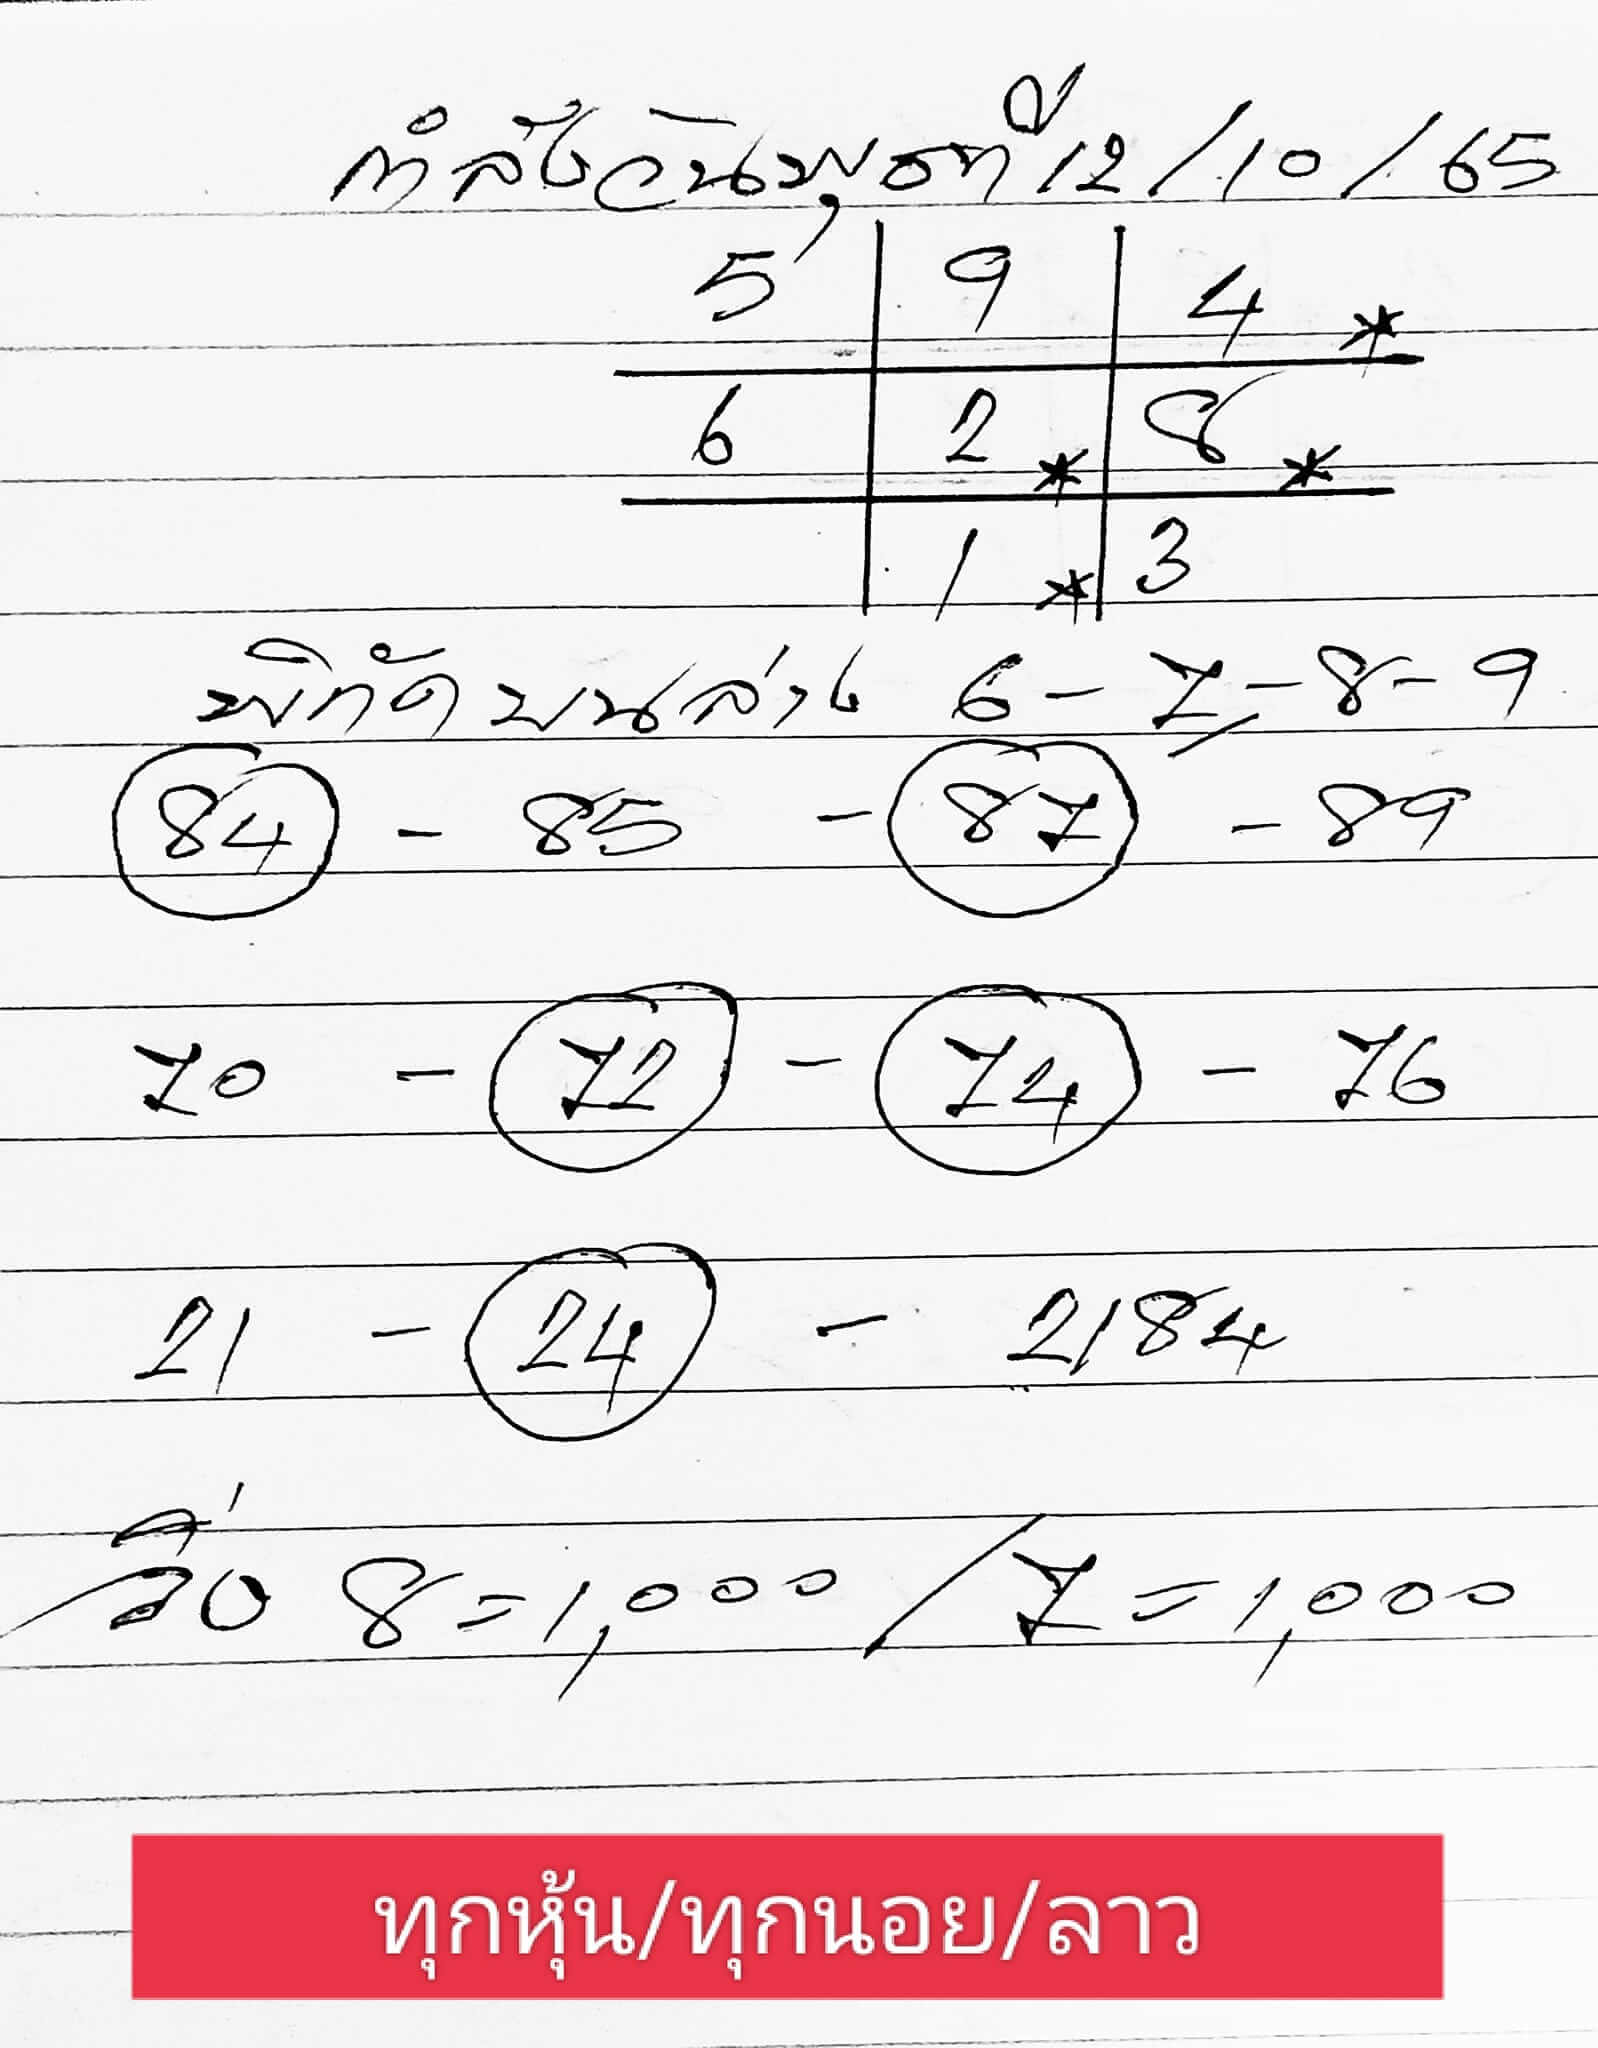 กำลังวันพุธที่ 12/10/65
5 9 4 *
6 2 * 8 *
1 * 3
พิกัดบนล่าง 6-7-8-9
84 - 85 - 87 - 89
70 - 72 - 74 - 76
21 - 24 - 2184
8=1,000/7=1,000
ทุกหุ้น/ทุกนอย/ลาว